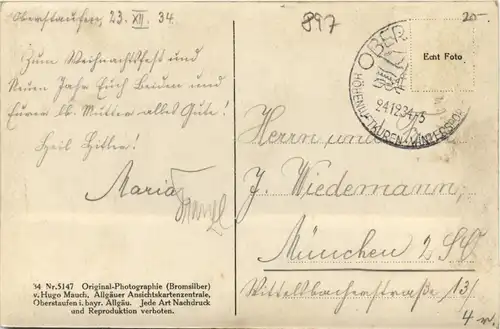 Oberstaufen, 23. XII. 34.
Zum Weihnachtsfest und
Neuen Jahr Euch Beiden und
Eurer lb. Mutter alles Gute!
Heil Hitler!
Maria
34 Nr. 5147 Original-Photographie (Bromsilber)
v. Hugo Mauch, Allgäuer Ansichtskartenzentrale,
Oberstaufen i. bayr. Allgäu. Jede Art Nachdruck
und Reproduktion verboten.
897
20.-
OBER
Echt Foto
24.12.34.
HÖHENLUFTKURORT
WINTERSPORT
Herrn und
J. Wiedemann,
München 2 SO
Wittelsbacherstraße 13/
4 r.